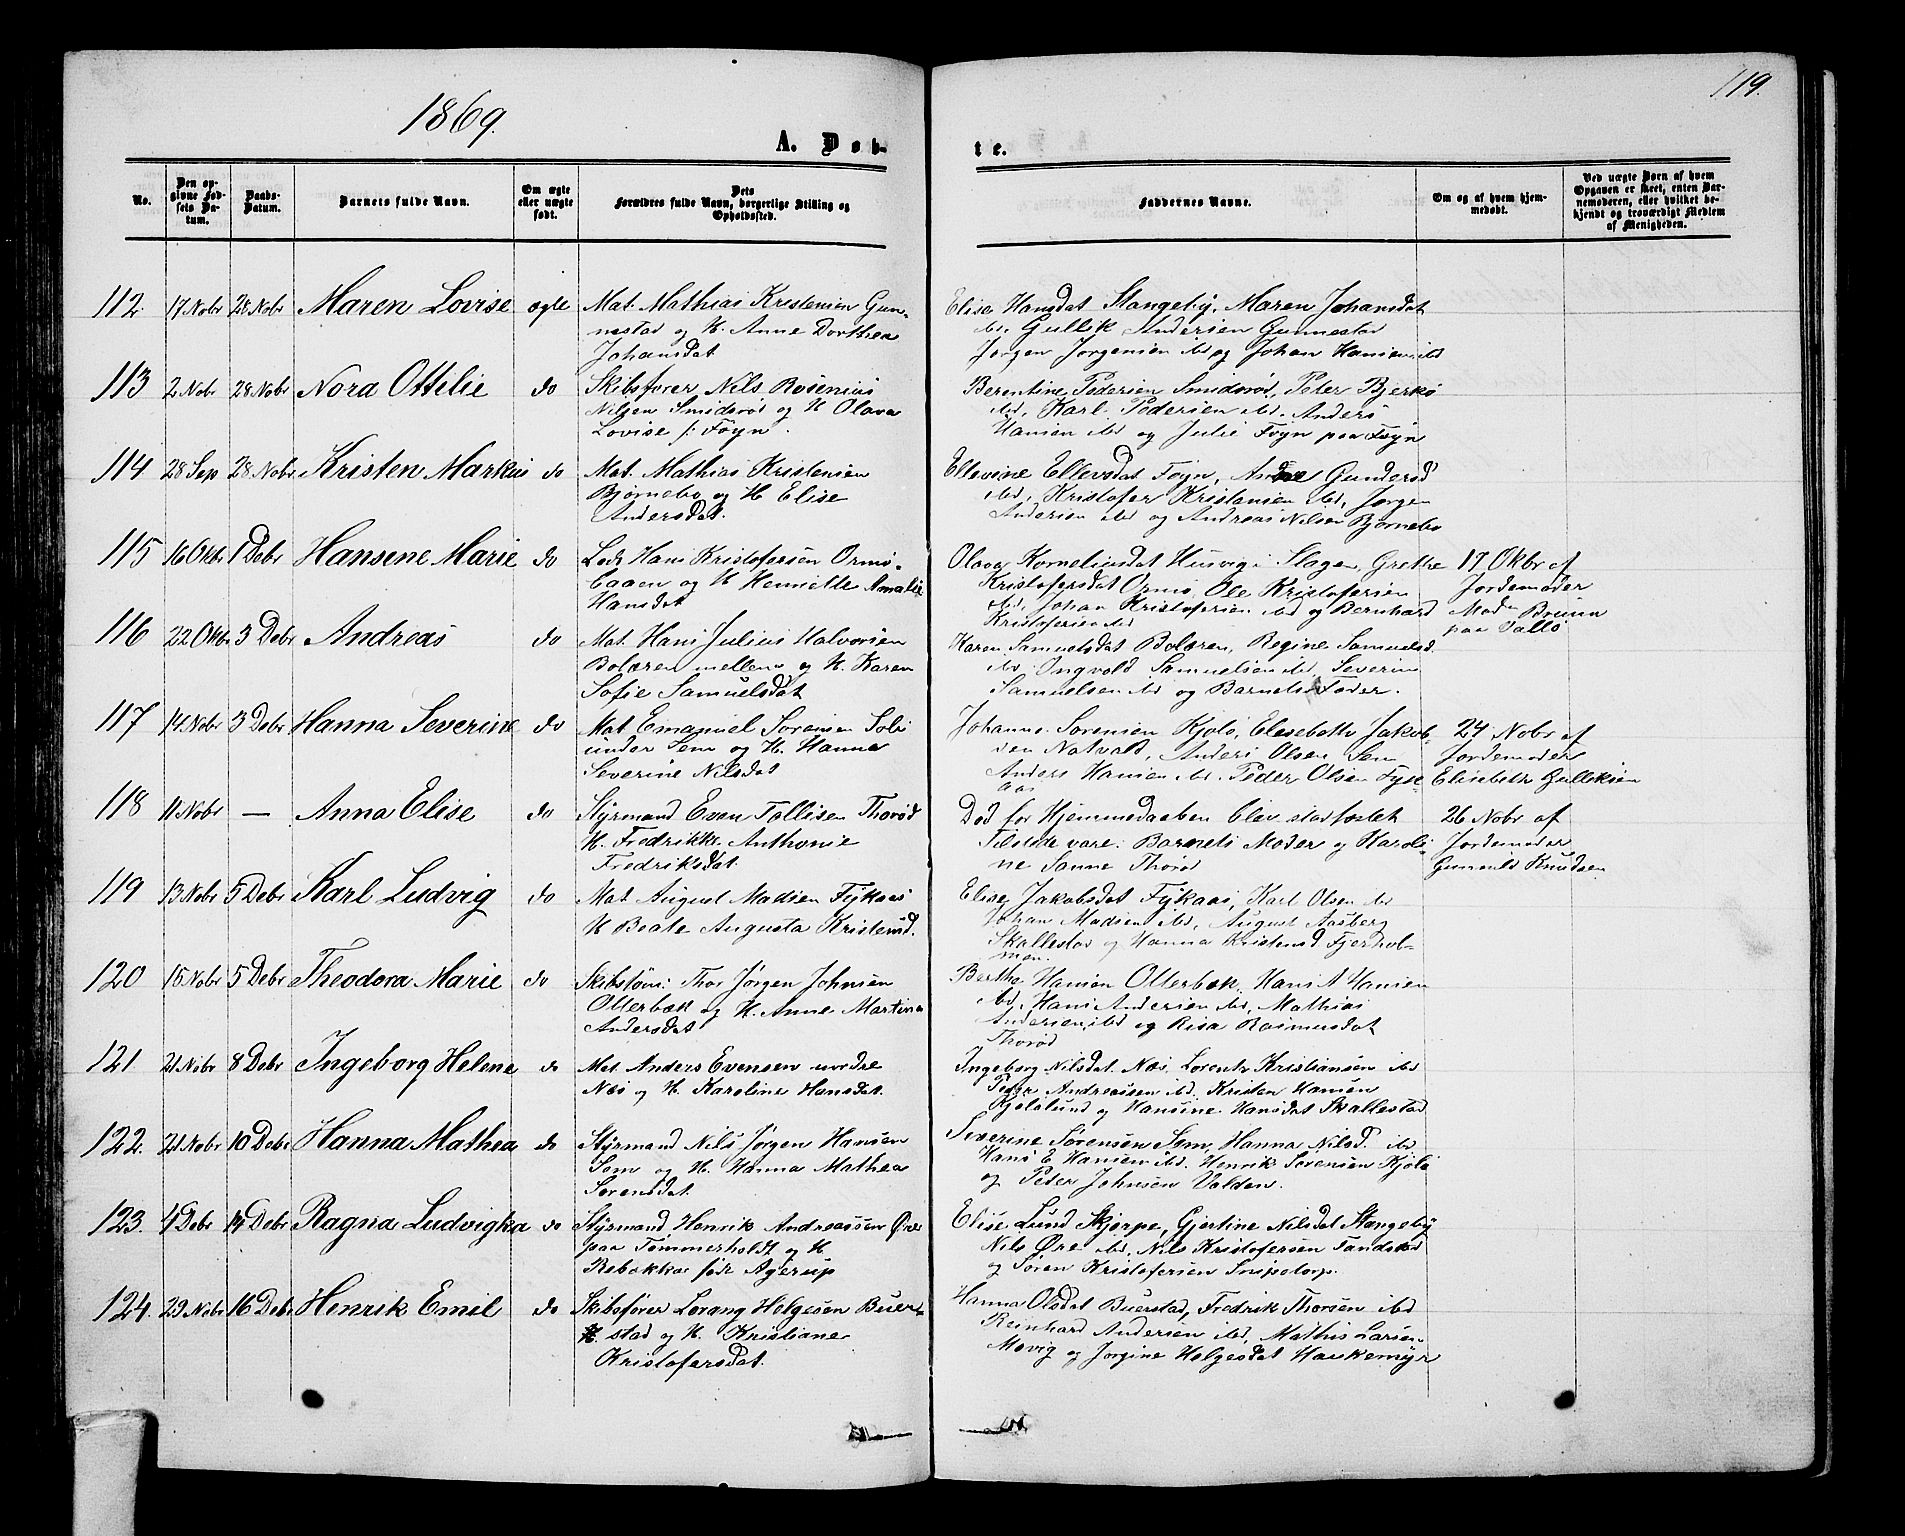 1869.
119.
A. Døb-
te.
No.
Den op-
givne Fød-
sels Da-
tum.
Daabs-
Datum.
Barnets fulde Navn.
Om ægte
eller uægte
født.
Dets
Forældres fulde Navn, borgerlige Stilling og
Opholdssted.
Faddernes Navne.
Om og af hvem hjem-
medøbt.
Ved uægte Børn af hvem
Opgaven er skeet, enten Bar-
nemoderen, eller hvilket be-
kjendt og troværdigt Medlem
af Menigheden.
112. 17 Nobr 28 Nobr Maren Lovise ægte
Mat. Mathias Kristensen Gun-
nestad og H. Anne Dorthea
Johansdat
Elise Hansdat Stangeby, Maren Johansdat
ibd, Gullik Andersen Gunnestad
Jørgen Jørgensen ibd og Johan Hansen ibd
113 2 Nobr 28 Nobr Nora Ottilie do
Skibsfører Nils Rosenius
Nilsen Smidsrød og H Olava
Lovise f: Føyn.
Berentine Pedersen Smidsrød, Peter Bjerkø
ibd, Karl Pedersen ibd. Anders
Hansen ibd og Julie Føyn paa Føyn
114 28 Sep 28 Nobr Kristen Markus do
Mat. Mathias Kristensen
Bjørnebo og H Elise
Andersdat.
Ellevine Ellevsdat Føyn, Gundersd
ibd, Kristofer Kristensen ibd, Jørgen
Andersen ibd og Andreas Nilsen Bjørnebo
115 16 Okbr 1 Debr Hansene Marie do
Lods Hans Kristofersen Ormø-
Caaen og H Henriette Amalie
Hansdat
Olava Korneliusdat Husvig i Slagen, Grethe
Kristofersdat Ormø, Ole Kristofersen
ibd, Johan Kristofersen ibd og Bernhard
Kristofersen ibd
17 Okbr af
Jordemoder
Madm Bruun
paa Valløe
116 22 Okbr 3 Debr Andreas do
Mat. Hans Julius Halvorsen
Bolæren mellem og H. Karen
Sofie Samuelsdat
Karen Samuelsdat Bolæren, Regine Samuelsd.
ibd, Ingvold Samuelsen ibd, Severin
Samuelsen ibd og Barnets Fader.
117 14 Nobr 3 Debr Hanna Severine do
Mat Emanuel Sørensen Solø
under Sem og H. Hanna
Severine Nilsdat
Johanne Sørensen Kjølø, Elesebeth Jakob-
sen Natvald, Anders Olsen Sem
Anders Hansen ibd. Peder Olsen Fyse
aas
24 Nobr af
Jordemoder
Elisebeth Gulliksen
118 11 Nobr — Anna Elise do
Styrmand Even Tollefsen Thorød
H. Fredrikke Anthonie
Fredriksdat.
Død før Hjemmedaaben blev stadfæstet
Tilstede vare: Barnets Moder og Karoli-
ne Sanne Thorød
26 Nobr af
Jordemoder
Gunnuld Knudsen
119 13 Nobr 5 Debr Karl Ludvig do
Mat August Madsen Fykaas
H Beate Augusta Kristensd.
Elise Jakobsdat Fykaas, Karl Olsen ibd
Johan Madsen ibd, August Aasberg
Skallestad og Hanna Kristensd Fjerhol-
men.
120 15 Nobr 5 Debr Theodora Marie do
Skibsføre: Thor Jørgen Johnsen
Ollerbæk og H. Anne Martina
Andersdat
Berthe Hansen Ollerbæk. Hans A Hansen
ibd, Hans Andersen ibd, Mathias
Andersen ibd og Risa Rasmusdat
Thorød
121 21 Nobr 8 Debr Ingeborg Helene do
Mat Anders Evensen nordre
Næs og H. Karoline Hansdat.
Ingeborg Nilsdat Næs, Lorents Kristiansen ibd
Peder Andreassen ibd. Kristen Hansen
Kjølslund og Hansine Hansdat Skallestad
122. 21 Nobr 10 Debr Hanna Mathea do
Styrmand Nils Jørgen Hansen
Sem og H. Hanna Mathea
Sørensdat
Severine Sørensen Sem, Hanna Nilsd. ibd
Hans E Hansen ibd. Henrik Sørensen Kjølø
og Peter Johnsen Valden.
123. 4 Debr 14 Debr Ragna Ludvigka do
Styrmand Henrik Andreassen Øre
paa Tømmerholdt og H
Rebekka født Agerup
Elise Lund Skjerpe, Gjertine Nilsdat Stangeby
Nils Øre ibd, Nils Kristofersen Sandstad
og Søren Kristofersen Snipetorp.
124. 29 Nobr 16 Debr Henrik Emil do
Skibsfører Lorang Helgesen Buer-
stad og H. Kristiane
Kristofersdat.
Hanna Olsdat Buerstad, Fredrik Thorsen ibd
Reinhard Andersen ibd, Mathis Larsen
Movig og Jørgine Helgesdat Haukemyr